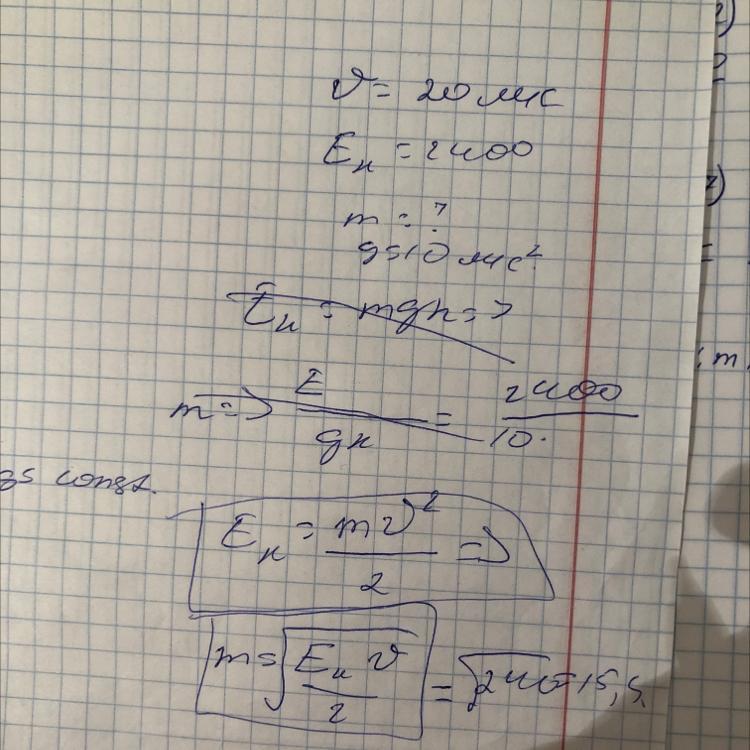 υ = 20 м/с
Eк = 2400
m = ?
g = 10 м/с²
Eк = mgh =>
m => E/gh = 2400/10·
g = const.
Eк = mυ²/2 =>
m = √(Eк υ/2) = √240 = 15,5